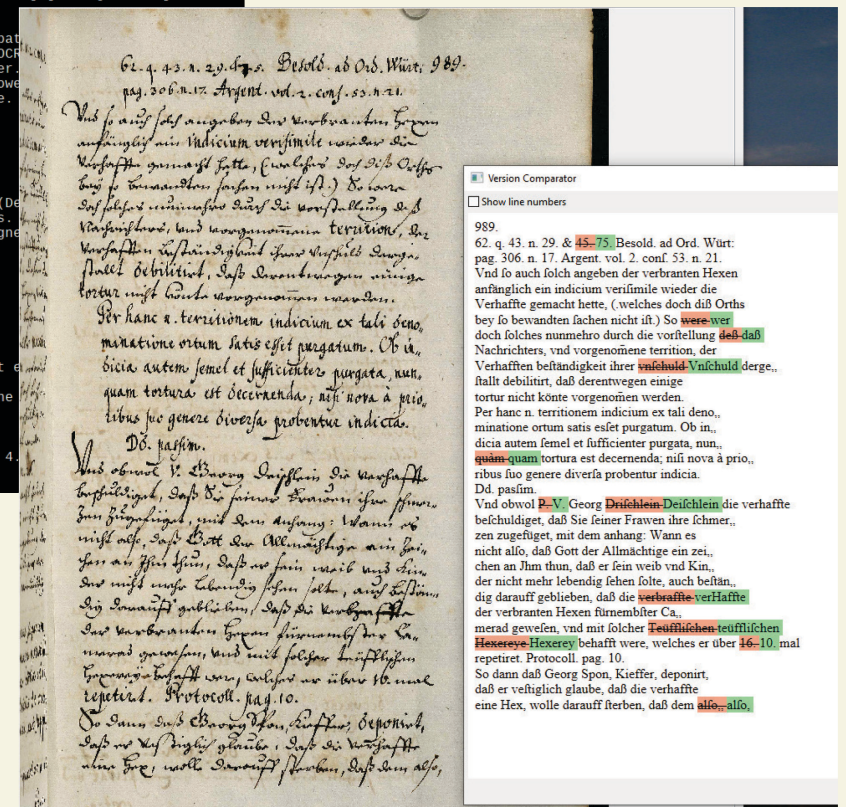 pat
OCR
er.
owe
e.
(De
s.
gne
t e
ne
4.
62. q. 43. n. 29. & 75. Besold. ad Ord. Würt: 989.
pag. 306. n. 17. Argent. vol. 2. conſ. 53. n. 21.
Vnd ſo auch ſolch angeben der verbranten Hexen
anfänglich ein indicium veriſimile wieder die
Verhaffte gemacht hette, (.welches doch diß Orths
bey ſo bewandten ſachen nicht iſt.) So were
doch ſolches nunmehro durch die vorſtellung deß
Nachrichters, vnd vorgenom̄ene territion, der
Verhafften beſtändigkeit ihrer Vnſchuld derge„
ſtallt debilitirt, daß derentwegen einige
tortur nicht könte vorgenom̄en werden.
Per hanc n. territionem indicium ex tali deno„
minatione ortum satis esſet purgatum. Ob in„
dicia autem ſemel et ſufficienter purgata, nun„
quam tortura est decernenda; niſi nova à prio„
ribus ſuo genere diverſa probentur indicia.
Dd. paſsim.
Vnd obwol V. Georg Deiſchlein die verhaffte
beſchuldiget, daß Sie ſeiner Frawen ihre ſchmer„
zen zugefüget, mit dem anhang: Wann es
nicht alſo, daß Gott der Allmächtige ein zei„
chen an Jhm thun, daß er ſein weib vnd Kin„
der nicht mehr lebendig ſehen ſolte, auch beſtän„
dig darauff geblieben, daß die verhraffte
der verbranten Hexen fürnembſter Ca„
merad geweſen, vnd mit ſolcher teüfflischen
Hexereye behafft were, welches er über 10. mal
repetiret. Protocoll. pag. 10.
So dann daß Georg Spon, Kieffer, deponirt,
daß er veſtiglich glaube, daß die verhaffte
eine Hex, wolle darauff ſterben, daß dem alſo,
Version Comparator
Show line numbers
989.
62. q. 43. n. 29. & 45. 75. Besold. ad Ord. Würt:
pag. 306. n. 17. Argent. vol. 2. conſ. 53. n. 21.
Vnd ſo auch ſolch angeben der verbranten Hexen
anfänglich ein indicium veriſimile wieder die
Verhaffte gemacht hette, (.welches doch diß Orths
bey ſo bewandten ſachen nicht iſt.) So were wer
doch ſolches nunmehro durch die vorſtellung deß daß
Nachrichters, vnd vorgenom̄ene territion, der
Verhafften beſtändigkeit ihrer vnſchuld Vnſchuld derge„
ſtallt debilitirt, daß derentwegen einige
tortur nicht könte vorgenom̄en werden.
Per hanc n. territionem indicium ex tali deno„
minatione ortum satis esſet purgatum. Ob in„
dicia autem ſemel et ſufficienter purgata, nun„
quàm quam tortura est decernenda; niſi nova à prio„
ribus ſuo genere diverſa probentur indicia.
Dd. paſsim.
Vnd obwol P. V. Georg Driſchlein Deiſchlein die verhaffte
beſchuldiget, daß Sie ſeiner Frawen ihre ſchmer„
zen zugefüget, mit dem anhang: Wann es
nicht alſo, daß Gott der Allmächtige ein zei„
chen an Jhm thun, daß er ſein weib vnd Kin„
der nicht mehr lebendig ſehen ſolte, auch beſtän„
dig darauff geblieben, daß die verbraffte verHaffte
der verbranten Hexen fürnembſter Ca„
merad geweſen, vnd mit ſolcher Teüffliſchen teüffliſchen
Hexereye Hexerey behafft were, welches er über 16. 10. mal
repetiret. Protocoll. pag. 10.
So dann daß Georg Spon, Kieffer, deponirt,
daß er veſtiglich glaube, daß die verhaffte
eine Hex, wolle darauff ſterben, daß dem alſo„ alſo,